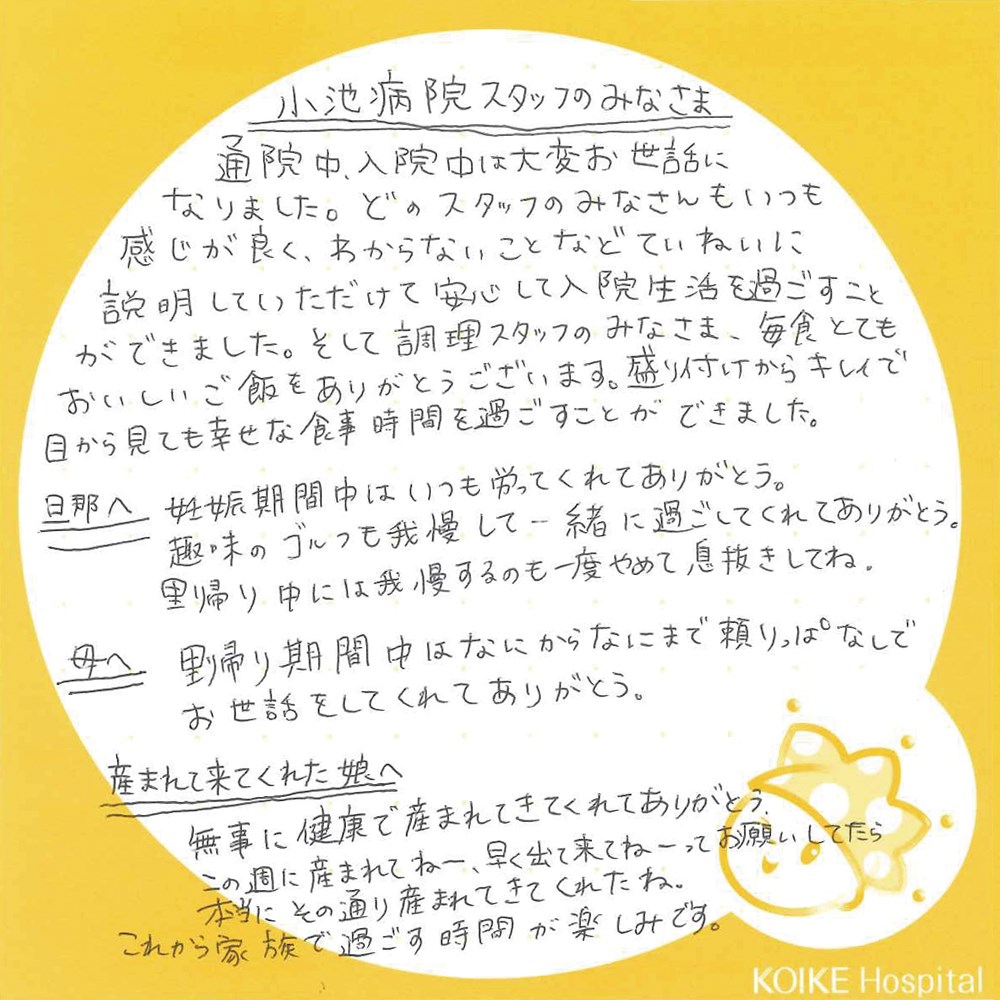 小池病院スタッフのみなさま
通院中、入院中は大変お世話に
なりました。どのスタッフのみなさんもいつも
感じが良く、わからないことなどていねいに
説明していただけて安心して入院生活を過ごすこと
ができました。そして調理スタッフのみなさま、毎食とても
おいしいご飯をありがとうございます。盛り付けからキレイで
目から見ても幸せな食事時間を過ごすことができました。
旦那へ 妊娠期間中はいつも労ってくれてありがとう。
趣味のゴルフも我慢して一緒に過ごしてくれてありがとう。
里帰り中には我慢するのも一度やめて息抜きしてね。
母へ 里帰り期間中はなにからなにまで頼りっぱなしで
お世話をしてくれてありがとう。
産まれて来てくれた娘へ
無事に健康で産まれてきてくれてありがとう。
この週に産まれてねー、早く出て来てねーってお願いしてたら
本当にその通り産まれてきてくれたね。
これから家族で過ごす時間が楽しみです。
KOIKE Hospital